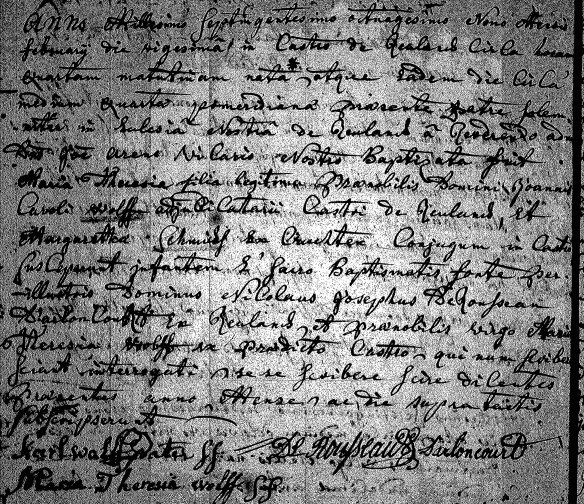 Anno Millesimo Septingentesimo octuagesimo Nono Mensis
februarij die vigesima in Castro de Reuland Circa horam
quartam matutinam nata atque eadem die Circa
mediam quarta pomeridiana praesente patre solem-
niter in Eclesia Nostra de Reuland a Reverendo adm
Dno Joe arens Vicario Nostro Baptizata fuit
Maria Theresia filia legitima Praenobilis Domini Joannis
Caroli wolff Castri de Reuland, et
Margaretha Schmids Cruchten Conjugum in Castro
susceperunt infantem e sacro Baptismatis fonte per-
-illustris Dominus Nicolaus Josephus De Rousseau
en Reuland et praenobilis virgo Maria
Theresia wolff ex praedicto Castro, qui num scribere
scirent interrogati, se scribere scire dicentes
praesentes anno Mense ac die supra dictis
subscripserunt
Karl wolff vater De Rousseau Dirloncourt
Maria Theresia wolff